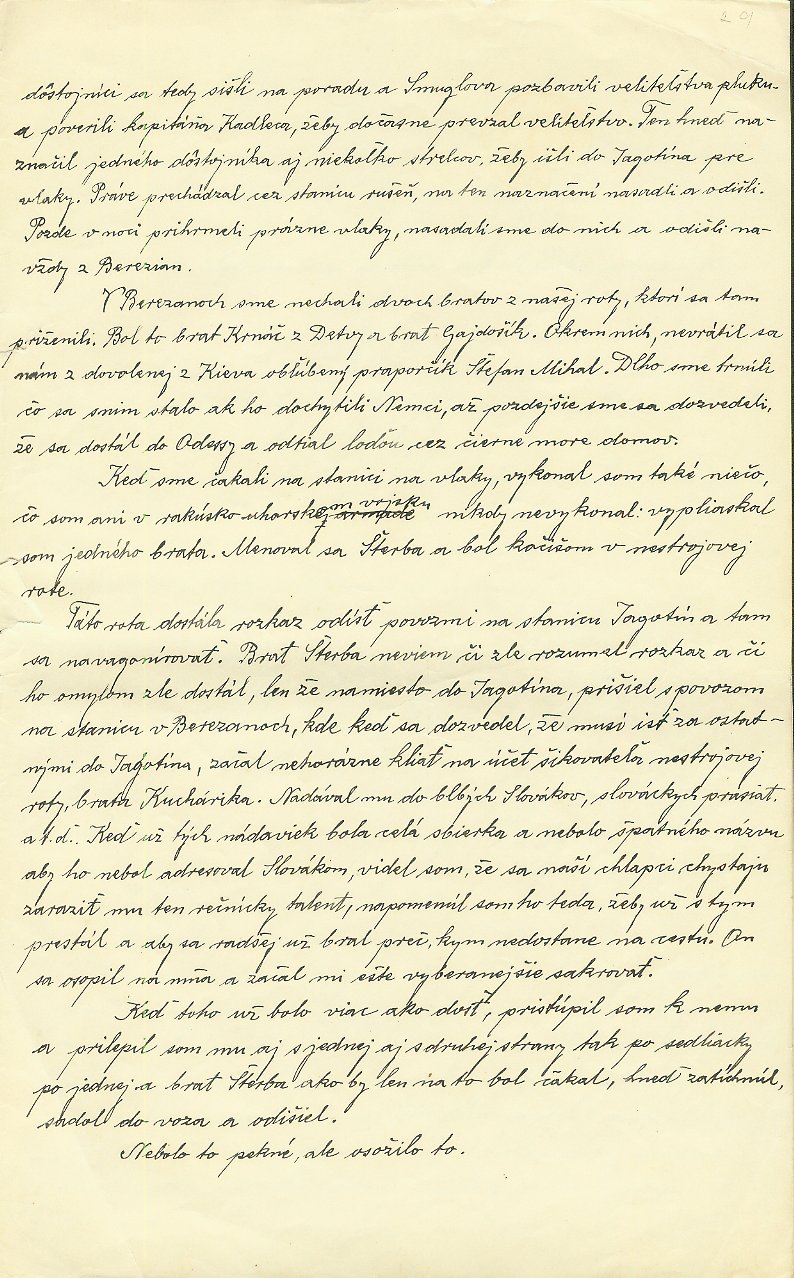 29
dôstojníci sa tedy sišli na poradu a Smuglova pozbavili veliteľstva pluku
a poverili kapitáňa Kadleca, žeby dočasne prevzal veliteľstvo. Ten hneď na-
značil jedného dôstojníka aj niekoľko strelcov, žeby išli do Jagotína pre
vlaky. Práve prechádzal cez stanicu rušeň, na ten naznačení nasadli a odišli.
Pozde v noci prihrmeli prázne vlaky, nasadali sme do nich a odišli na-
vždy z Berezian.
V Berezanoch sme nechali dvoch bratov z našej roty, ktorí sa tam
priženili. Bol to brat Krnáč z Detvy a brat Gajdošík. Okrem nich, nevrátil sa
nám z dovolenej z Kieva obľúbený praporčík Štefan Mihal. Dlho sme trnúli
čo sa sním stalo ak ho dochytili Nemci, až pozdejšie sme sa dozvedeli,
že sa dostál do Odessy a odtial loďou cez čierne more domov.
Keď sme čakali na stanici na vlaky, vykonal som také niečo,
čo som ani v rakúsko-uhorskom vojsku nikdy nevykonal: vypliaskal
som jedného brata. Menoval sa Šterba a bol kočišom v nestrojovej
rote.
Táto rota dostála rozkaz odísť povozmi na stanicu Jagotín a tam
sa navagonírovať. Brat Šterba neviem či zle rozumel rozkaz a či
ho omylom zle dostál, len že namiesto do Jagotína, prišiel s povozom
na stanicu v Berezanoch, kde keď sa dozvedel, že musí isť za ostat-
nými do Jagotína, začal nehorázne kliať na účet šikovateľa nestrojovej
roty, brata Kuchárika. Nadával mu do blbých Slovákov, slováckych prasiat.
a t.d.. Keď už tých nádaviek bola celá sbierka a nebolo špatného názvu
aby ho nebol adresoval Slovákom, videl som, že sa naší chlapci chystajú
zaraziť mu ten rečnícky talent, napomenúl som ho teda, žeby už s tým
prestál a aby sa radšej už bral preč, kym nedostane na cestu. On
sa osopil na mňa a začal mi ešte vyberanejšie sakrovať.
Keď toho už bolo viac ako dosť, pristúpil som k nemu
a prilepil som mu aj s jednej aj s druhej strany tak po sedliácky
po jednej a brat Šterba ako by len na to bol čakal, hneď zatíchnúl,
sadol do voza a odišiel.
Nebolo to pekné, ale osožilo to.